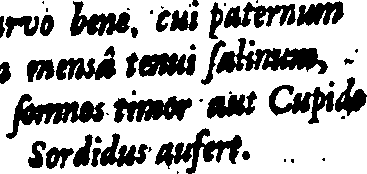 arvo bene, cui paternum
mensâ tenui ſalinum,
ſomnos timor aut Cupido
Sordidus aufert.